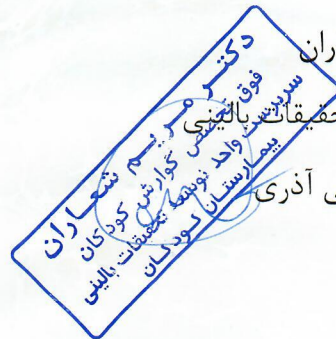 ران
حقیقات بالینی
ی آذری
دکتر مریم شعاران
فوق تخصص گوارش کودکان
سرپرست واحد توسعه تحقیقات بالینی
بیمارستان کودکان